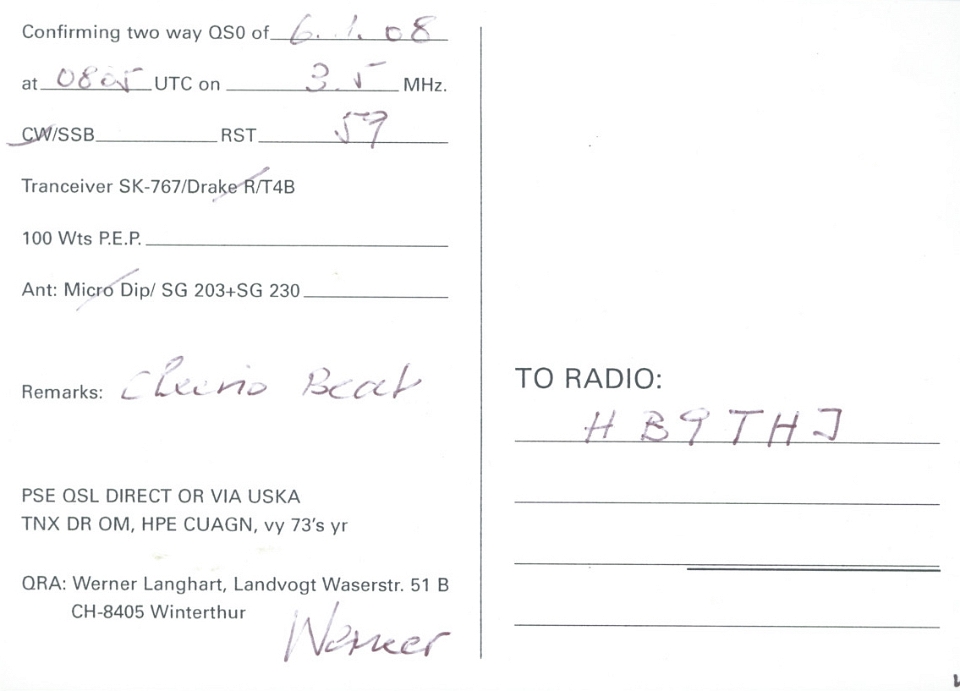 Confirming two way QSO of 6. 1. 08
at 0805 UTC on 3.5 MHz.
CW/SSB RST 59
Tranceiver SK-767/Drake R/T4B
100 Wts P.E.P.
Ant: Micro Dip/ SG 203+SG 230
Remarks: Cheerio Beat
PSE QSL DIRECT OR VIA USKA
TNX DR OM, HPE CUAGN, vy 73's yr
QRA: Werner Langhart, Landvogt Waserstr. 51 B
CH-8405 Winterthur
Werner
TO RADIO:
HB9THJ